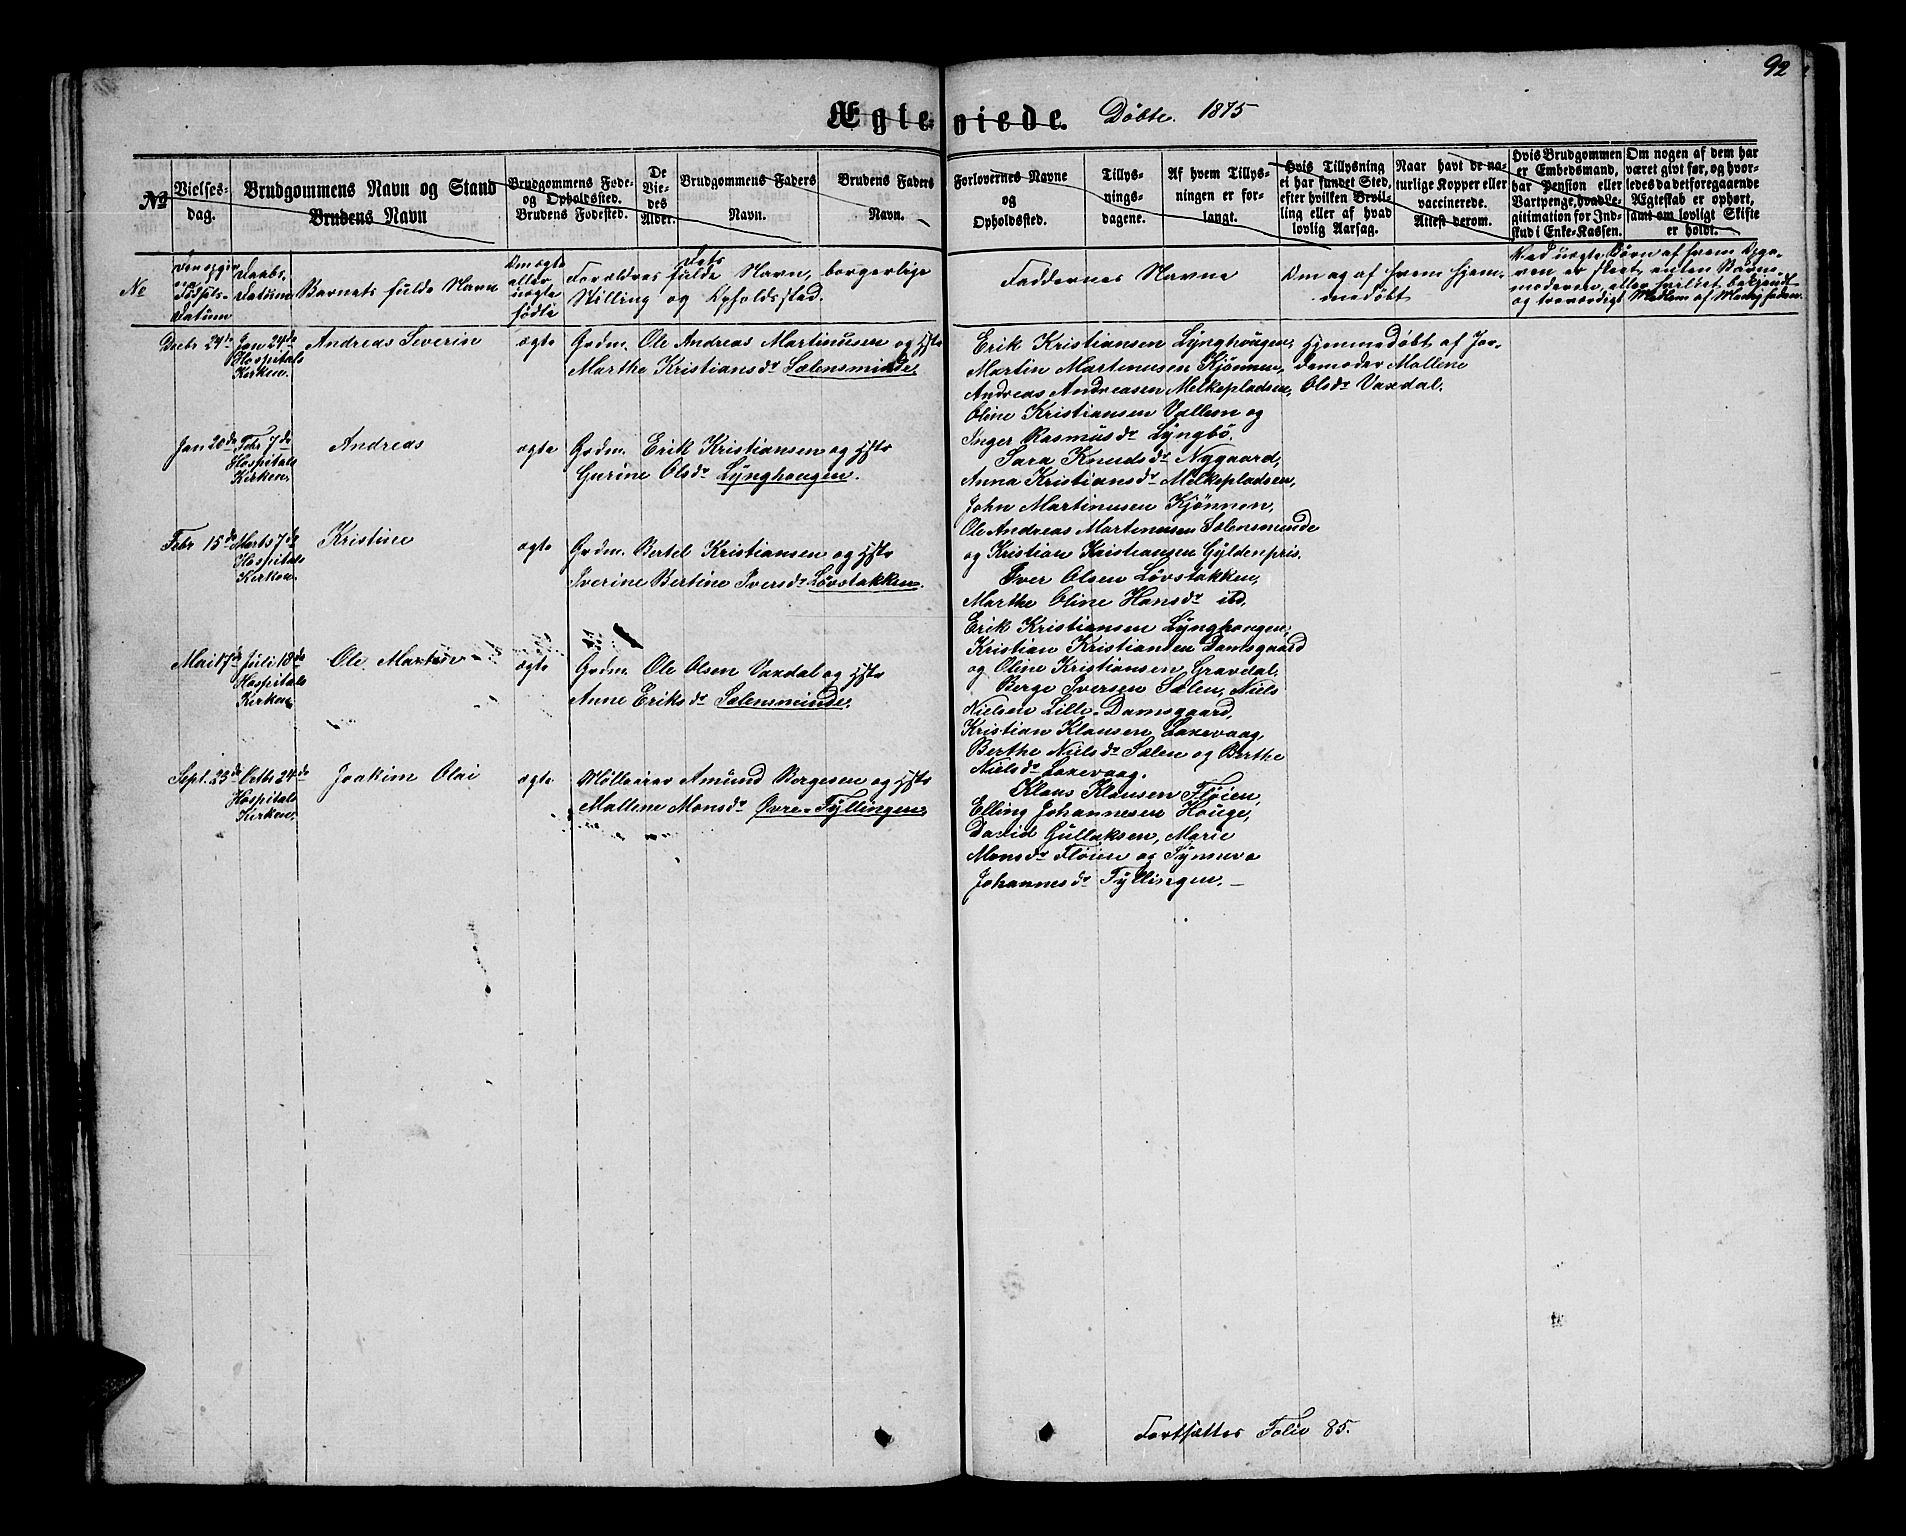 92
Ægteviede. Døbte. 1875
No
Vielses-
dag.
Brudgommens Navn og Stand
Brudens Navn
Brudgommens Føde-
og Opholdssted.
Brudens Fødested.
De
Vie-
des
Alder.
Brudgommens Faders
Navn.
Brudens Faders
Navn.
Forlovernes Navne
og
Opholdssted.
Tillys-
nings-
dagene.
Af hvem Tillys-
ningen er for-
langt.
Hvis Tillysning
ei har fundet Sted,
efter hvilken Bevil-
ling eller af hvad
lovlig Aarsag.
Naar havt de na-
turlige Kopper eller
vaccinerede.
Attest derom.
Hvis Brudgommen
er Embedsmand,
har Pension eller
Vartpenge, hvad Le-
gitimation for Ind-
skud i Enke-Kassen.
Om nogen af dem har
været givt før, og hvor-
ledes da det foregaaende
Ægteskab er ophørt,
samt om lovligt Skifte
er holdt.
No
Den opgivne
Fødsels-
datum
Daabs-
Datum
Barnets fulde Navn
Om ægte
eller
uægte
fødte
Forældres fulde Navn, borgerlige
Stilling og Opholdssted.
Faddernes Navne
Om og af hvem hjem-
medøbt
Ved uægte Børn af hvem Opga-
ven er skeet, enten Barne-
moderen, eller forløst bekjendt
og troværdigt Medlem af Menigheden.
Decbr 24de Jan 24de Andreas Severin ægte Grdm. Ole Andreas Martinusen og Hstr
Hospitals
Kirken. Marthe Kristiansdr Sælensminde.
Erik Kristiansen Lynghougen,
Martin Martinusen Kjønnen,
Andreas Andreasen Melkepladsen,
Oline Kristiansen Vallem og
Inger Rasmusdr Lyngbö.
Hjemmedøbt af Jor-
demoder Mallene
Olsdr Vaxdal.
Jan 20de Febr 7de Andreas ægte Grdm. Erik Kristiansen og Hstr
Hospitals
Kirken. Gurine Olsdr Lynghougen.
Sara Knudsdr Nygaard,
Anna Kristiansdr Melkepladsen,
John Martinusen Kjönnen,
Ole Andreas Martinusen Sælensminde
og Kristian Kristiansen Gyldenpris.
Febr 15de Marts 7de Kristine ægte Grdm. Bertel Kristiansen og Hstr
Hospitals
Kirken. Iverine Bertine Iversdr Løvstakken.
Iver Olsen Løvstakken,
Marthe Oline Hansdr ibd,
Erik Kristiansen Lynghougen,
Kristian Kristiansen Damsgaard
og Oline Kristiansen Gravdal.
Mai 17de Juli 18de Ole Martin ægte Grdm. Ole Olsen Vaxdal og Hstr
Hospitals
Kirken. Anne Eriksdr Sælensminde.
Berge Iversen Sælen, Niels
Nielsen Lille-Damsgaard,
Kristian Klausen Laxevaag,
Berthe Nielsdr Sælen og Berthe
Nielsdr Laxevaag.
Sept. 23de Octbr 24de Joakim Olai ægte Møllesvend Amund Børgesen og Hstr
Hospitals
Kirken. Mallene Monsdr Øvre-Fyllingen.
Klaus Klausen Fløien,
Elling Johannesen Houge,
David Gullaksen, Marie
Monsdr Fløien og Synneva
Johannesdr Fyllingen. –
Fortsættes Folio 85.